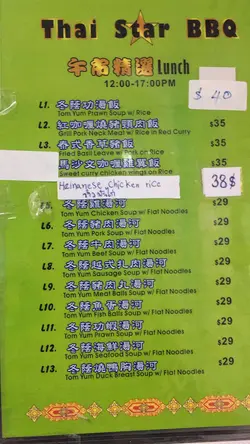 Thai Star BBQ
午市精選 Lunch
12:00-17:00PM
$ 40
L1. 冬陰功湯飯
Tom Yum Prawn Soup w/ Rice
L2. 紅咖喱燒豬頸肉飯 $35
Grill Pork Neck Meat w/ Rice in Red Curry
L3. 泰式香草豬飯 $35
Fried Basil Leave w/ Pork on Rice
馬沙文咖喱雞翼飯 $35
Sweet curry chicken wings on Rice
Heinanese chicken rice
ข้าวมันไก่
38$
冬陰雞湯河 $29
Tom Yum Chicken Soup w/ Flat Noodles
L6. 冬陰豬肉湯河 $29
Tom Yum Pork Soup w/ Flat Noodles
L7. 冬陰牛肉湯河 $29
Tom Yum Beef Soup w/ Flat Noodles
L8. 冬陰越式扎肉湯河 $29
Tom Yum Sausage Soup w/ Flat Noodles
L9. 冬陰豬肉丸湯河 $29
Tom Yum Meat Balls Soup w/ Flat Noodles
L10. 冬陰魚蛋湯河 $29
Tom Yum Fish Balls Soup w/ Flat Noodles
L11. 冬陰功蝦湯河 $29
Tom Yum Prawn Soup w/ Flat Noodles
L12. 冬陰海鮮湯河 $29
Tom Yum Seafood Soup w/ Flat Noodles
L13. 冬陰燒鴨胸湯河 $29
Tom Yum Duck Breast Soup w/ Flat Noodles